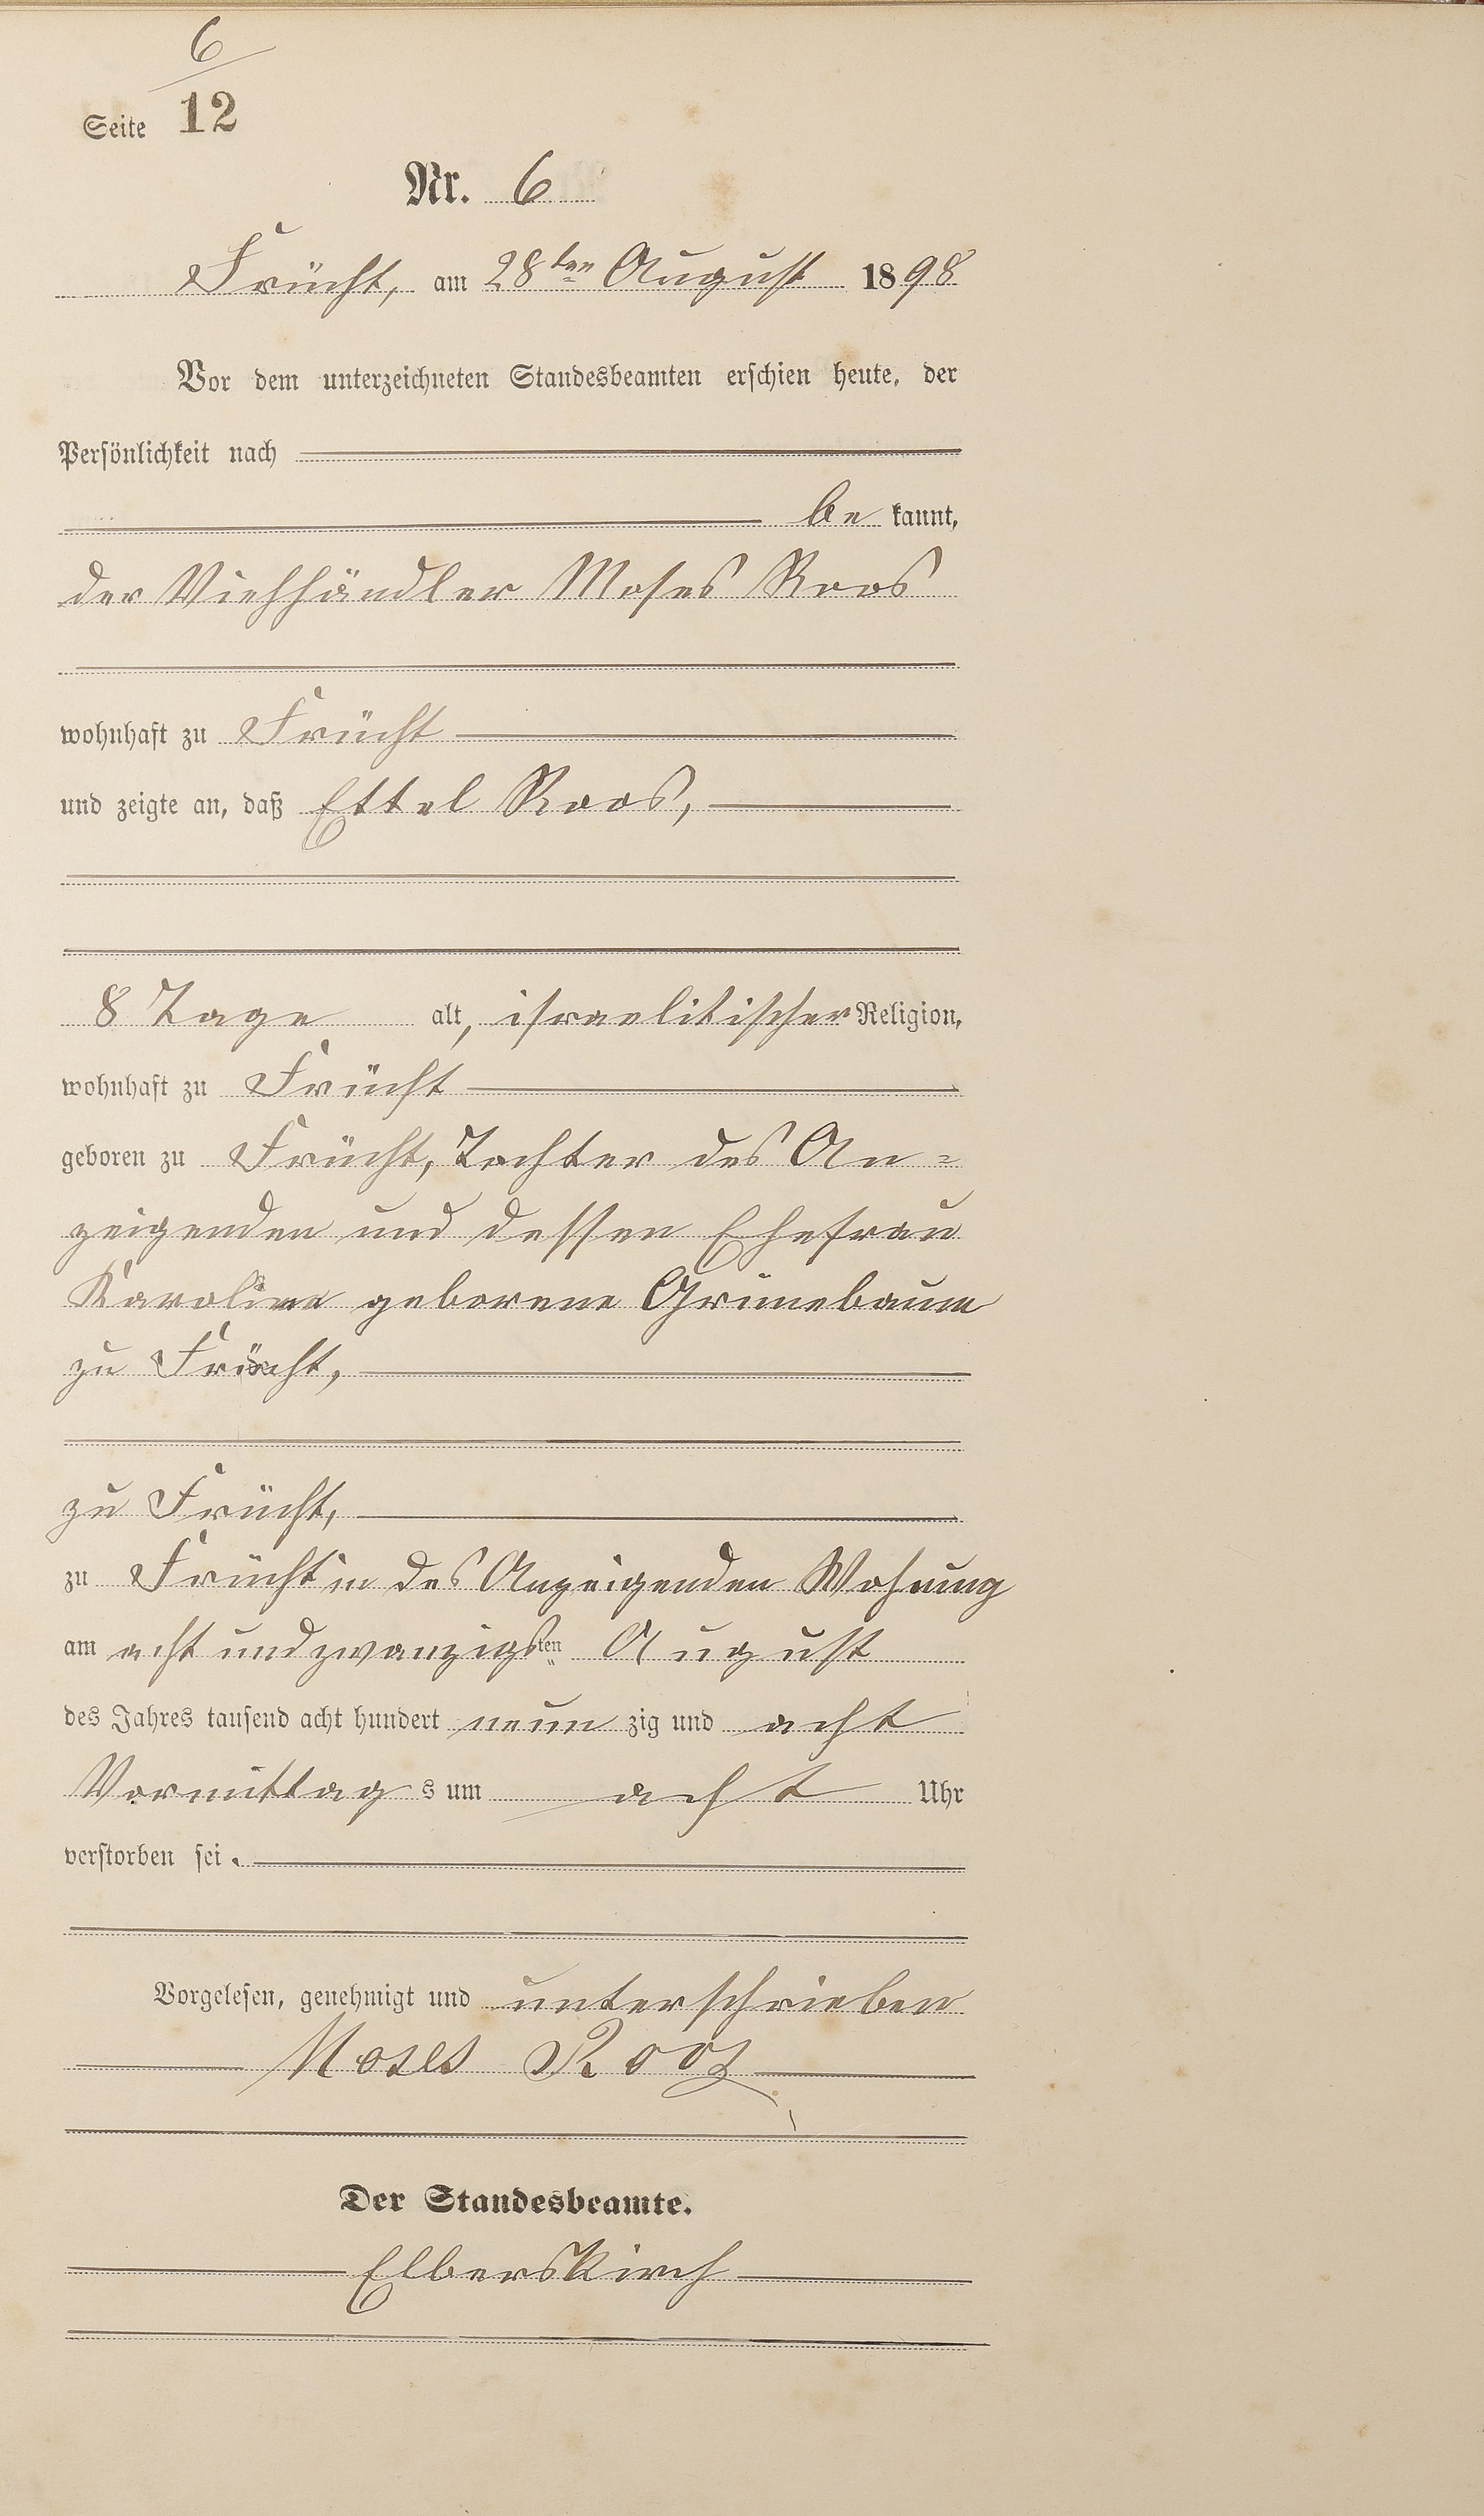 6
Seite 12
Nr. 6
Frücht, am 28ten August 1898
Vor dem unterzeichneten Standesbeamten erschien heute, der
Persönlichkeit nach
be kannt,
der Viehhändler Moses Roos
wohnhaft zu Frücht
und zeigte an, daß Ettel Roos,
8 Tage alt, israelitischer Religion,
wohnhaft zu Frücht
geboren zu Frücht, Tochter des An=
zeigenden und dessen Ehefrau
Karoline geborene Grünebaum
zu Frücht,
zu Frücht,
zu Frücht in des Anzeigenden Wohnung
am acht und zwanzigsten August
des Jahres tausend acht hundert neun zig und acht
Vormittag s um acht Uhr
verstorben sei.
Vorgelesen, genehmigt und unterschrieben
Moses Roos
Der Standesbeamte.
Elberskirch